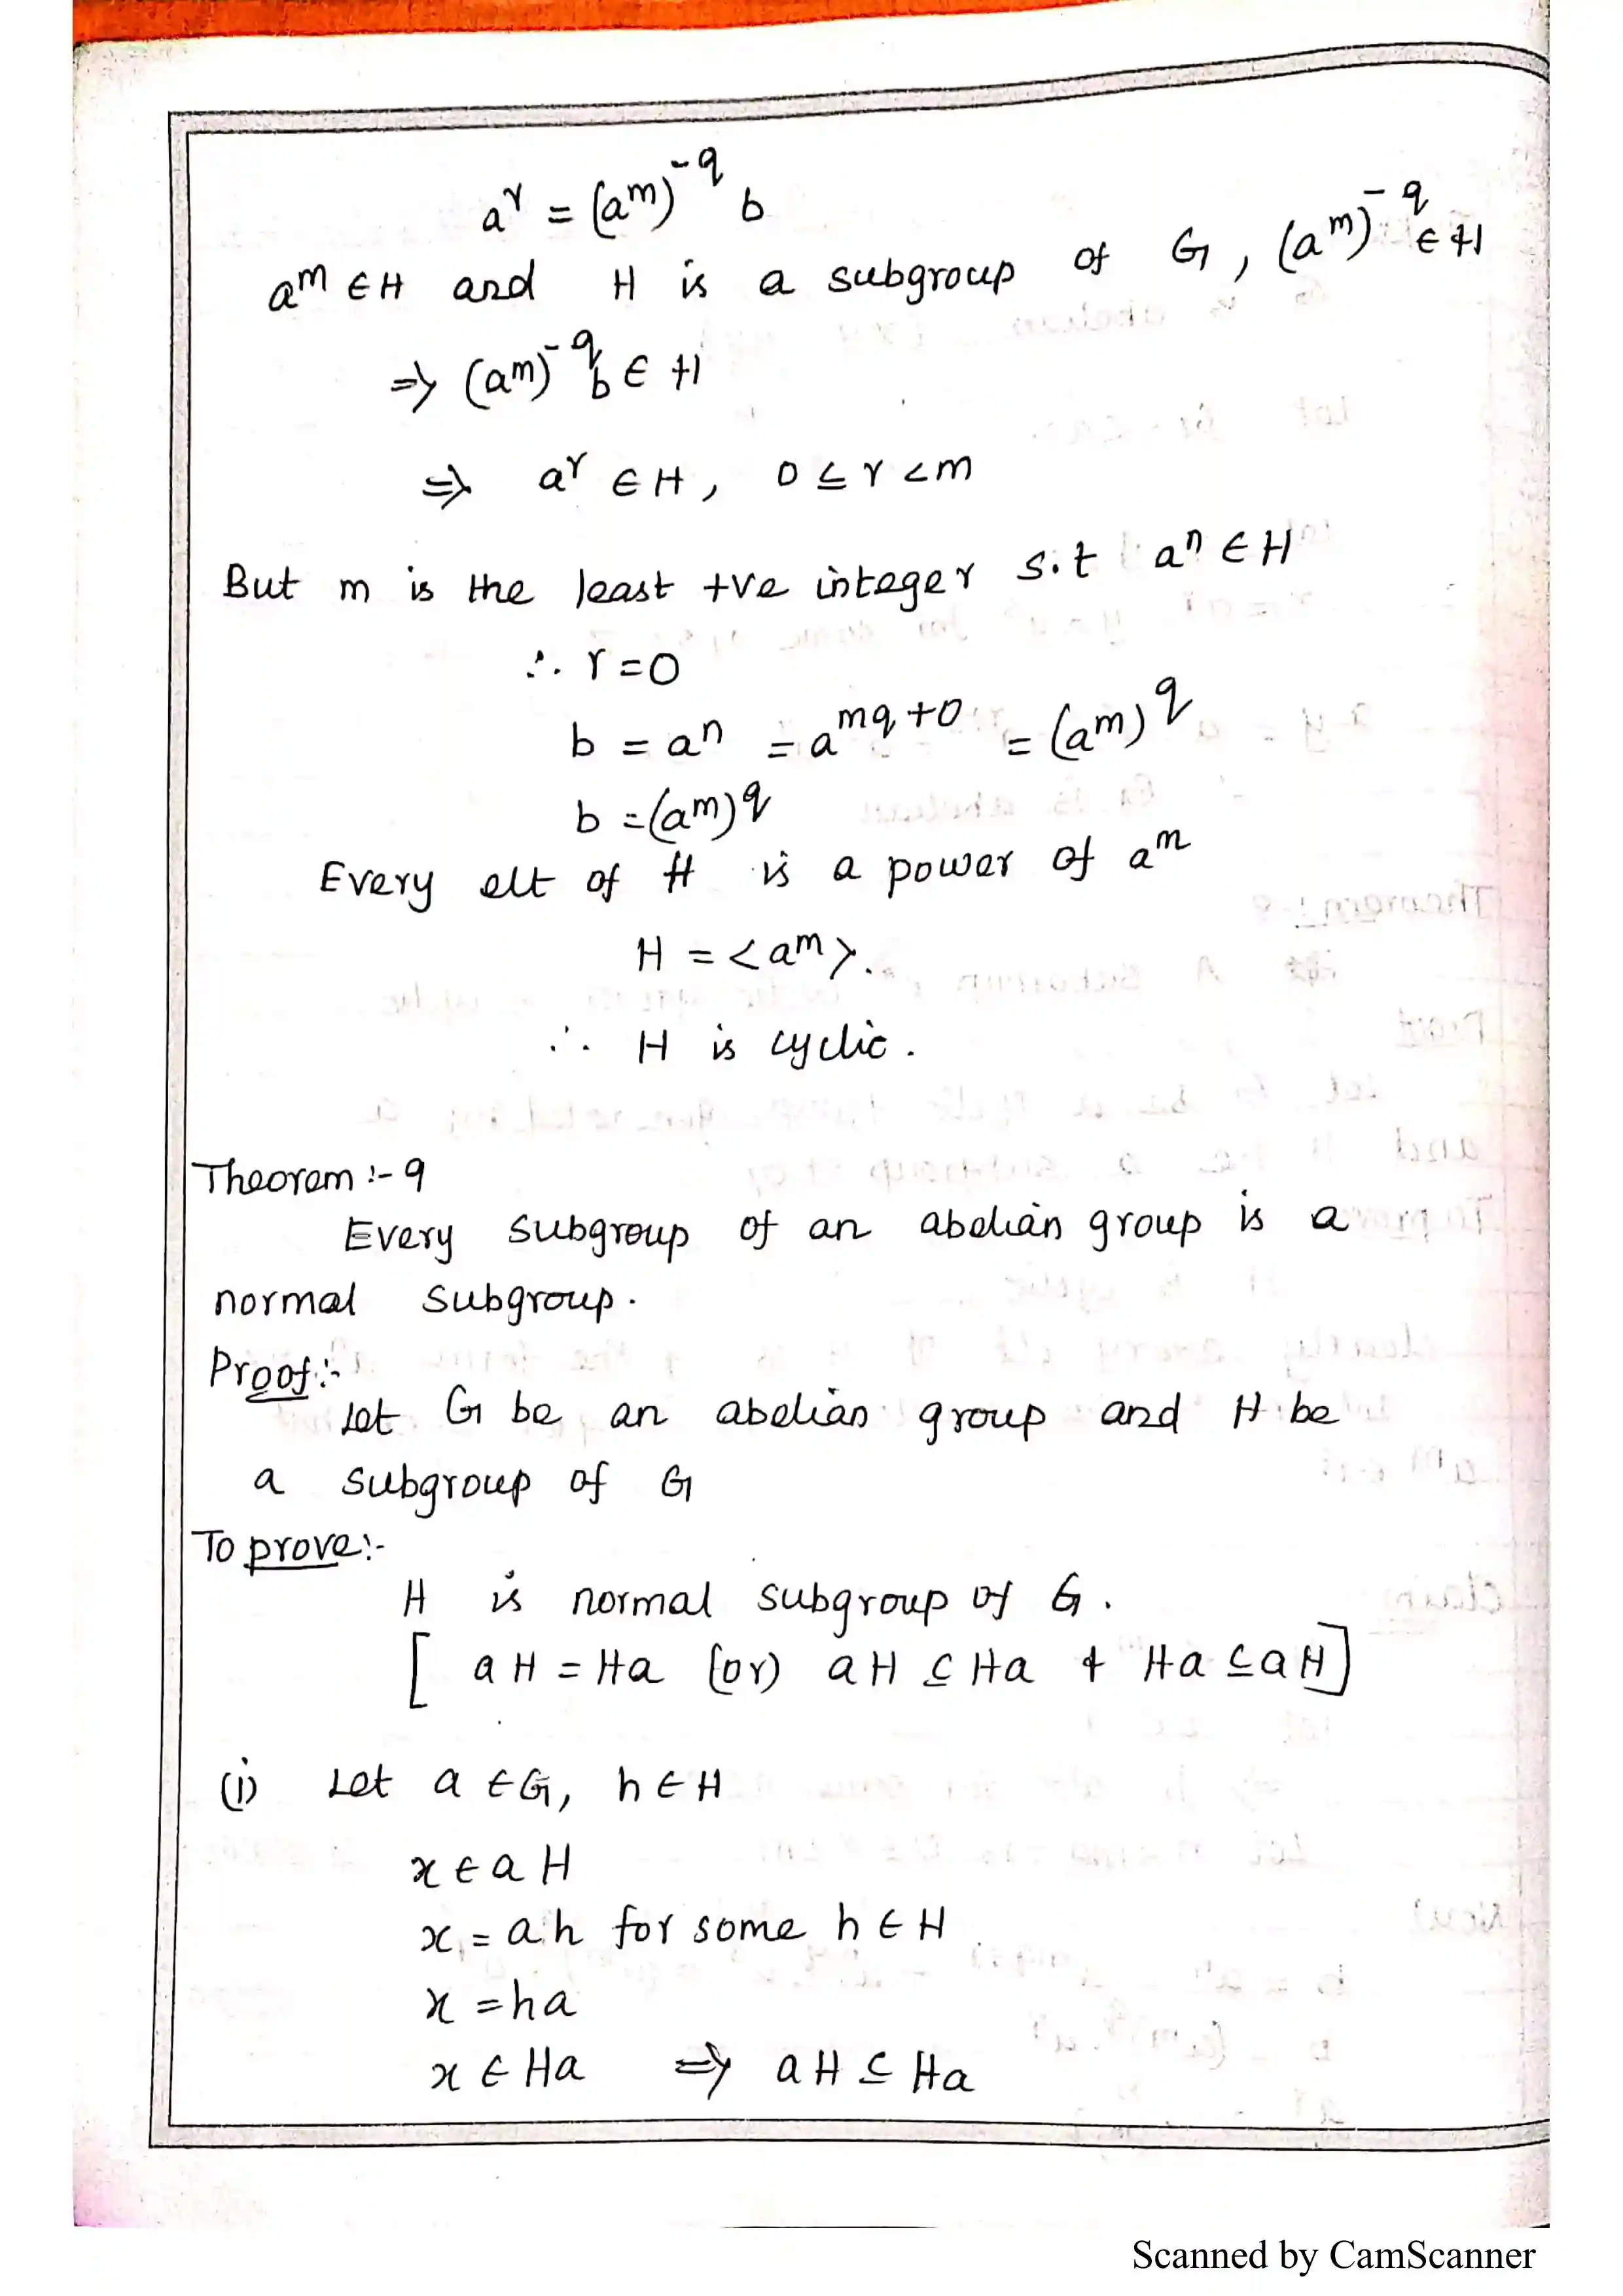 a^r = (a^m)^{-q} b
a^m ∈ H and H is a subgroup of G, (a^m)^{-q} ∈ H
⇒ (a^m)^{-q} b ∈ H
⇒ a^r ∈ H, 0 ≤ r < m
But m is the least +ve integer s.t a^n ∈ H
∴ r = 0
b = a^n = a^{mq+0} = (a^m)^q
b = (a^m)^q
Every elt of H is a power of a^m
H = <a^m>.
∴ H is cyclic.
Theorem :- 9
Every subgroup of an abelian group is a
normal subgroup.
Proof:-
Let G be an abelian group and H be
a subgroup of G
To prove:-
H is normal subgroup of G.
[ aH = Ha (or) aH ⊆ Ha & Ha ⊆ aH ]
(i) Let a ∈ G, h ∈ H
x ∈ aH
x = ah for some h ∈ H
x = ha
x ∈ Ha ⇒ aH ⊆ Ha
Scanned by CamScanner